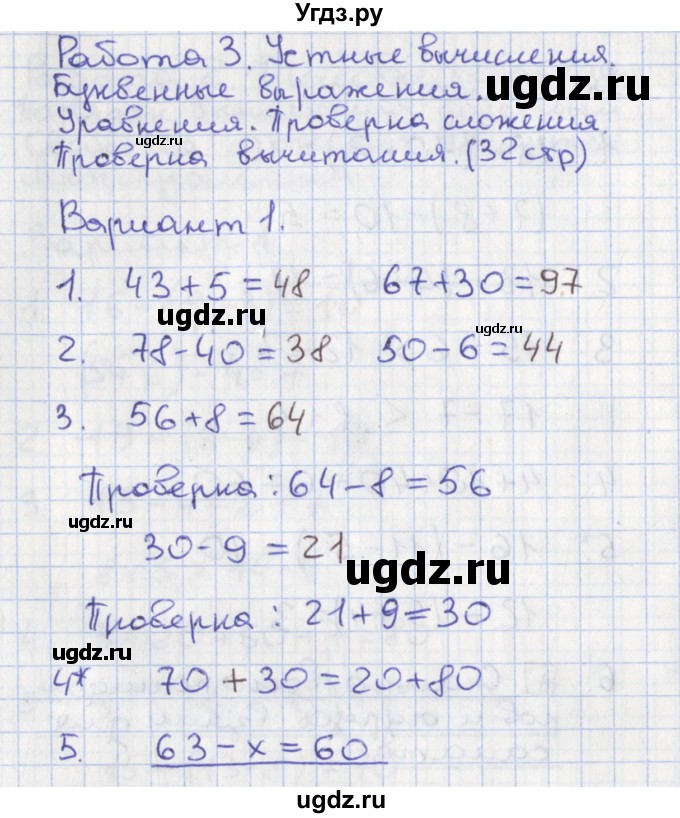 Угдз.ру
Работа 3. Устные вычисления.
Буквенные выражения.
ugdz.ru
Уравнения. Проверка сложения.
Проверка вычитания. (32 стр)
ugdz.ru
Вариант 1.
1. 43+5=48 67+30=97
ugdz.ru
ugdz.ru
2. 78-40=38 50-6=44
3. 56+8=64
Проверка: 64-8=56
ugdz.ru
30-9=21
ugdz.ru
Проверка: 21+9=30
ugdz.ru
4* 70+30=20+80
5. 63-х=60
ugdz.ru
ugdz.ru